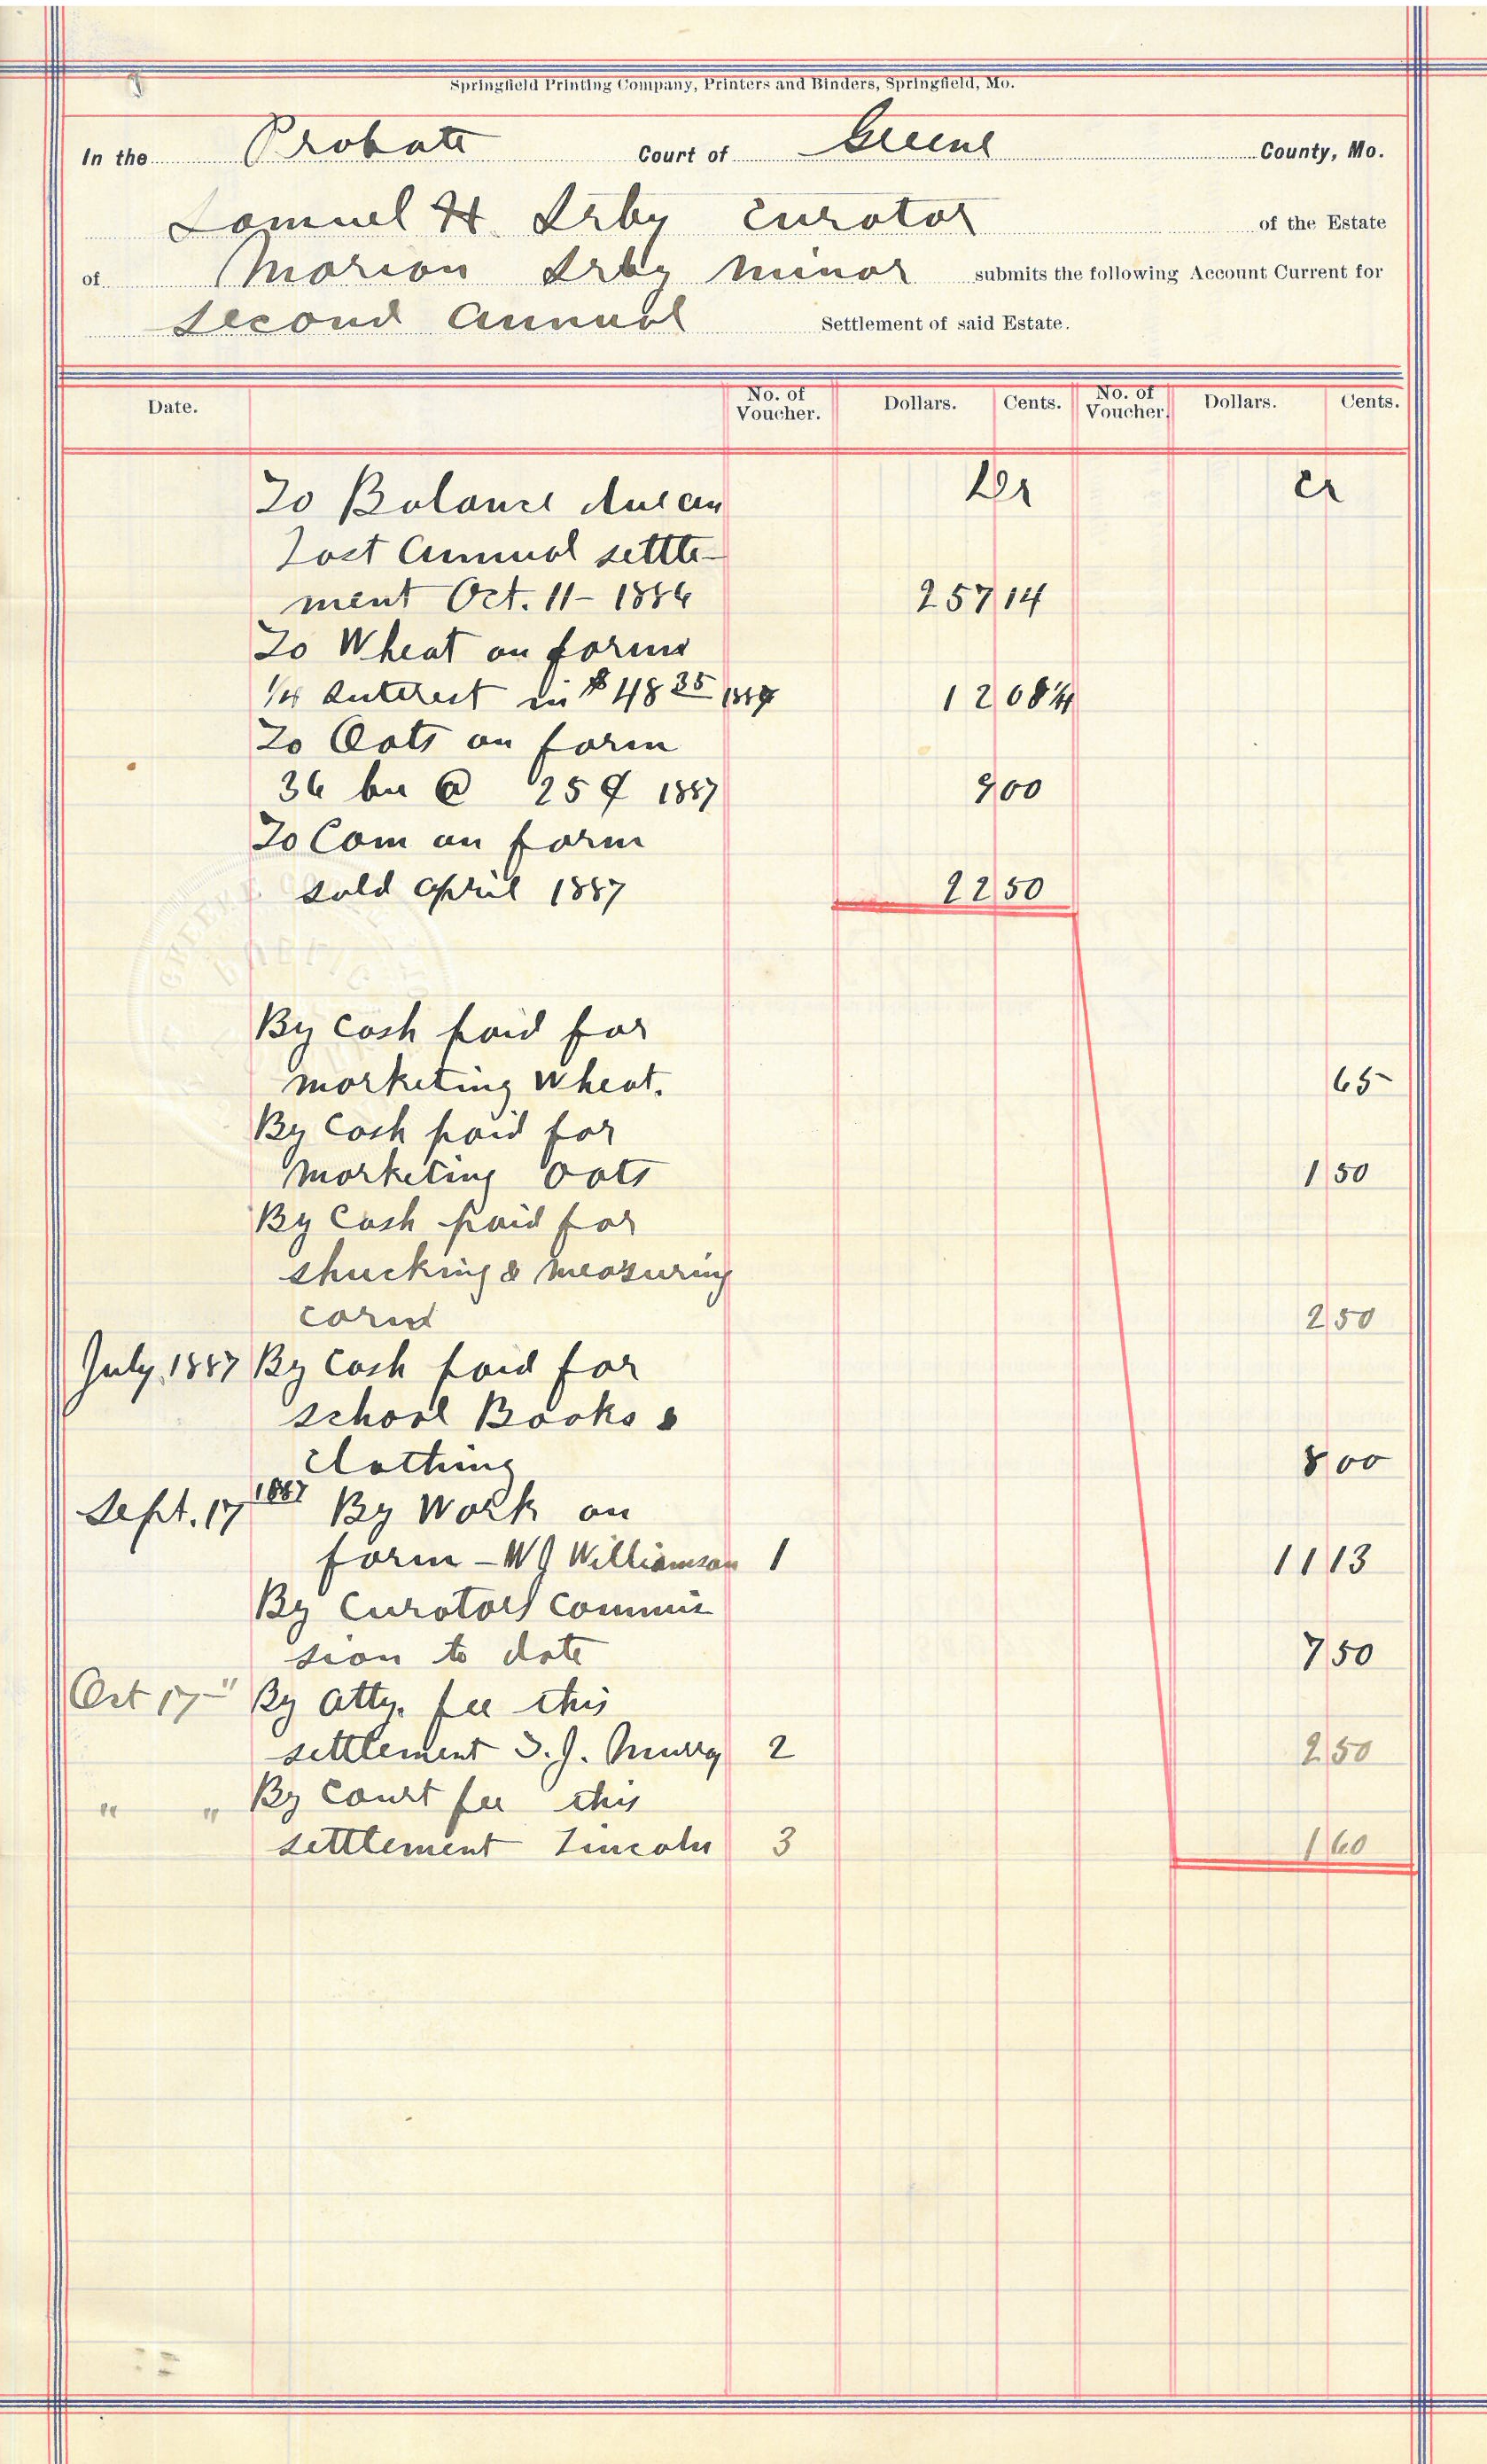 Springfield Printing Company, Printers and Binders, Springfield, Mo.
In the Probate Court of Greene County, Mo.
Samuel H Irby Curator of the Estate
of Marion Irby minor submits the following Account Current for
Second Annual Settlement of said Estate.
Date. No. of Voucher. Dollars. Cents. No. of Voucher. Dollars. Cents.
To Balance due on Dr Cr
last Annual settle-
ment Oct. 11 - 1886 257 14
To Wheat on farm
1/4 Interest in $48 35 1887 12 08 3/4
To Oats on farm
36 bu @ 25 ¢ 1887 9 00
To Corn on farm
sold April 1887 22 50
By Cash paid for
marketing wheat. 65
By Cash paid for
marketing oats 1 50
By Cash paid for
shucking & measuring
corn 2 50
July, 1887 By Cash paid for
school Books &
clothing 8 00
Sept. 17 1887 By Work on
farm - W J Williamson 1 11 13
By Curators commis
sion to date 7 50
Oct 17 - " By Atty. fee this
settlement T. J. Murry 2 2 50
" " By Court fee this
settlement Lincoln 3 1 60